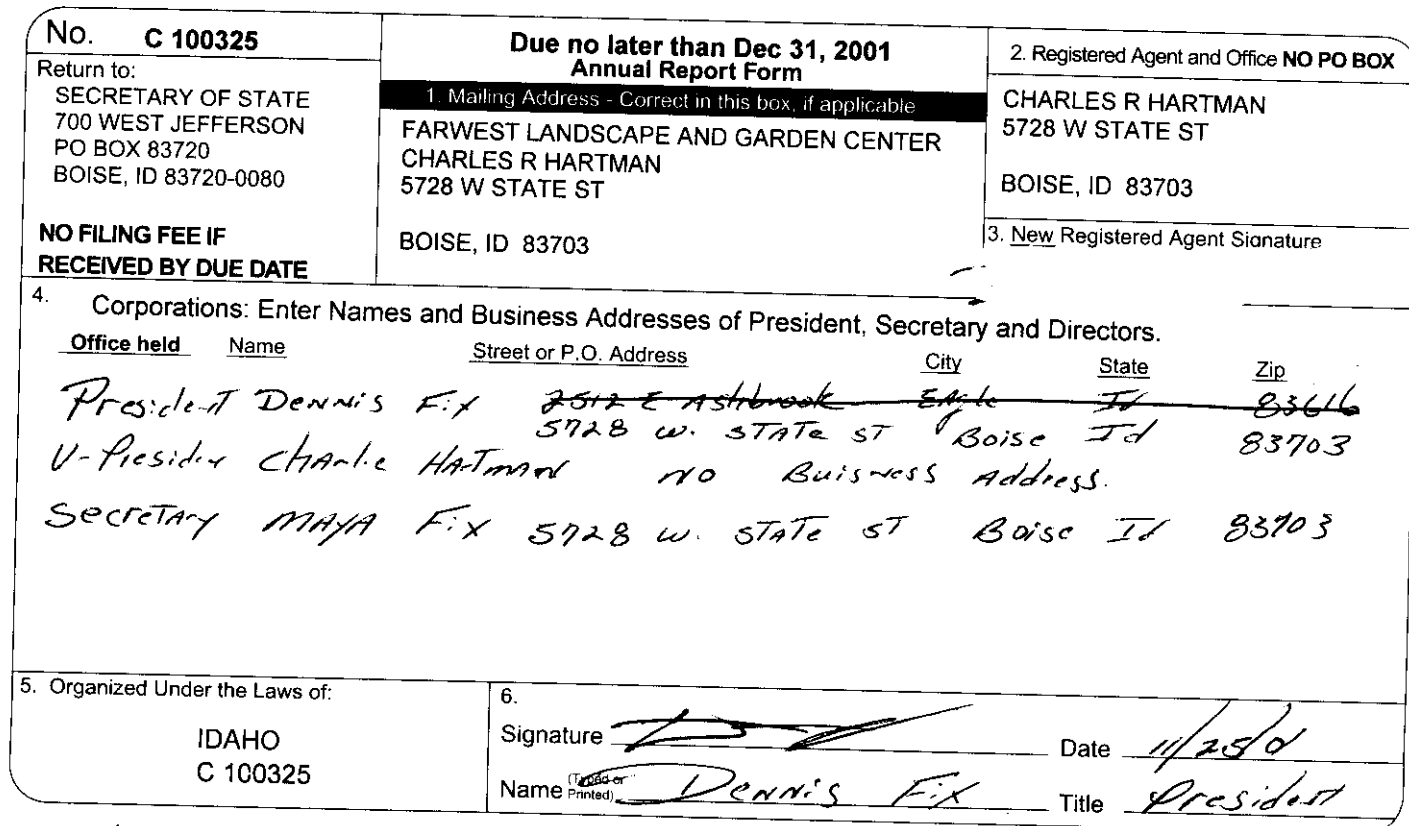 No. C 100325
Return to:
SECRETARY OF STATE
700 WEST JEFFERSON
PO BOX 83720
BOISE, ID 83720-0080
NO FILING FEE IF
RECEIVED BY DUE DATE
Due no later than Dec 31, 2001
Annual Report Form
1. Mailing Address - Correct in this box, if applicable
FARWEST LANDSCAPE AND GARDEN CENTER
CHARLES R HARTMAN
5728 W STATE ST
BOISE, ID 83703
2. Registered Agent and Office NO PO BOX
CHARLES R HARTMAN
5728 W STATE ST
BOISE, ID 83703
3. New Registered Agent Signature
4. Corporations: Enter Names and Business Addresses of President, Secretary and Directors.
Office held Name Street or P.O. Address City State Zip
President Dennis Fix 2512 E Ashbrook Eagle Id 83616
5728 W. STATE ST Boise Id 83703
V-President Charlie Hartman NO Buisness Address.
Secretary MAYA Fix 5728 W. STATE ST Boise Id 83703
5. Organized Under the Laws of:
IDAHO
C 100325
6.
Signature Date 11/25/01
Name (Typed or Printed) Dennis Fix Title President